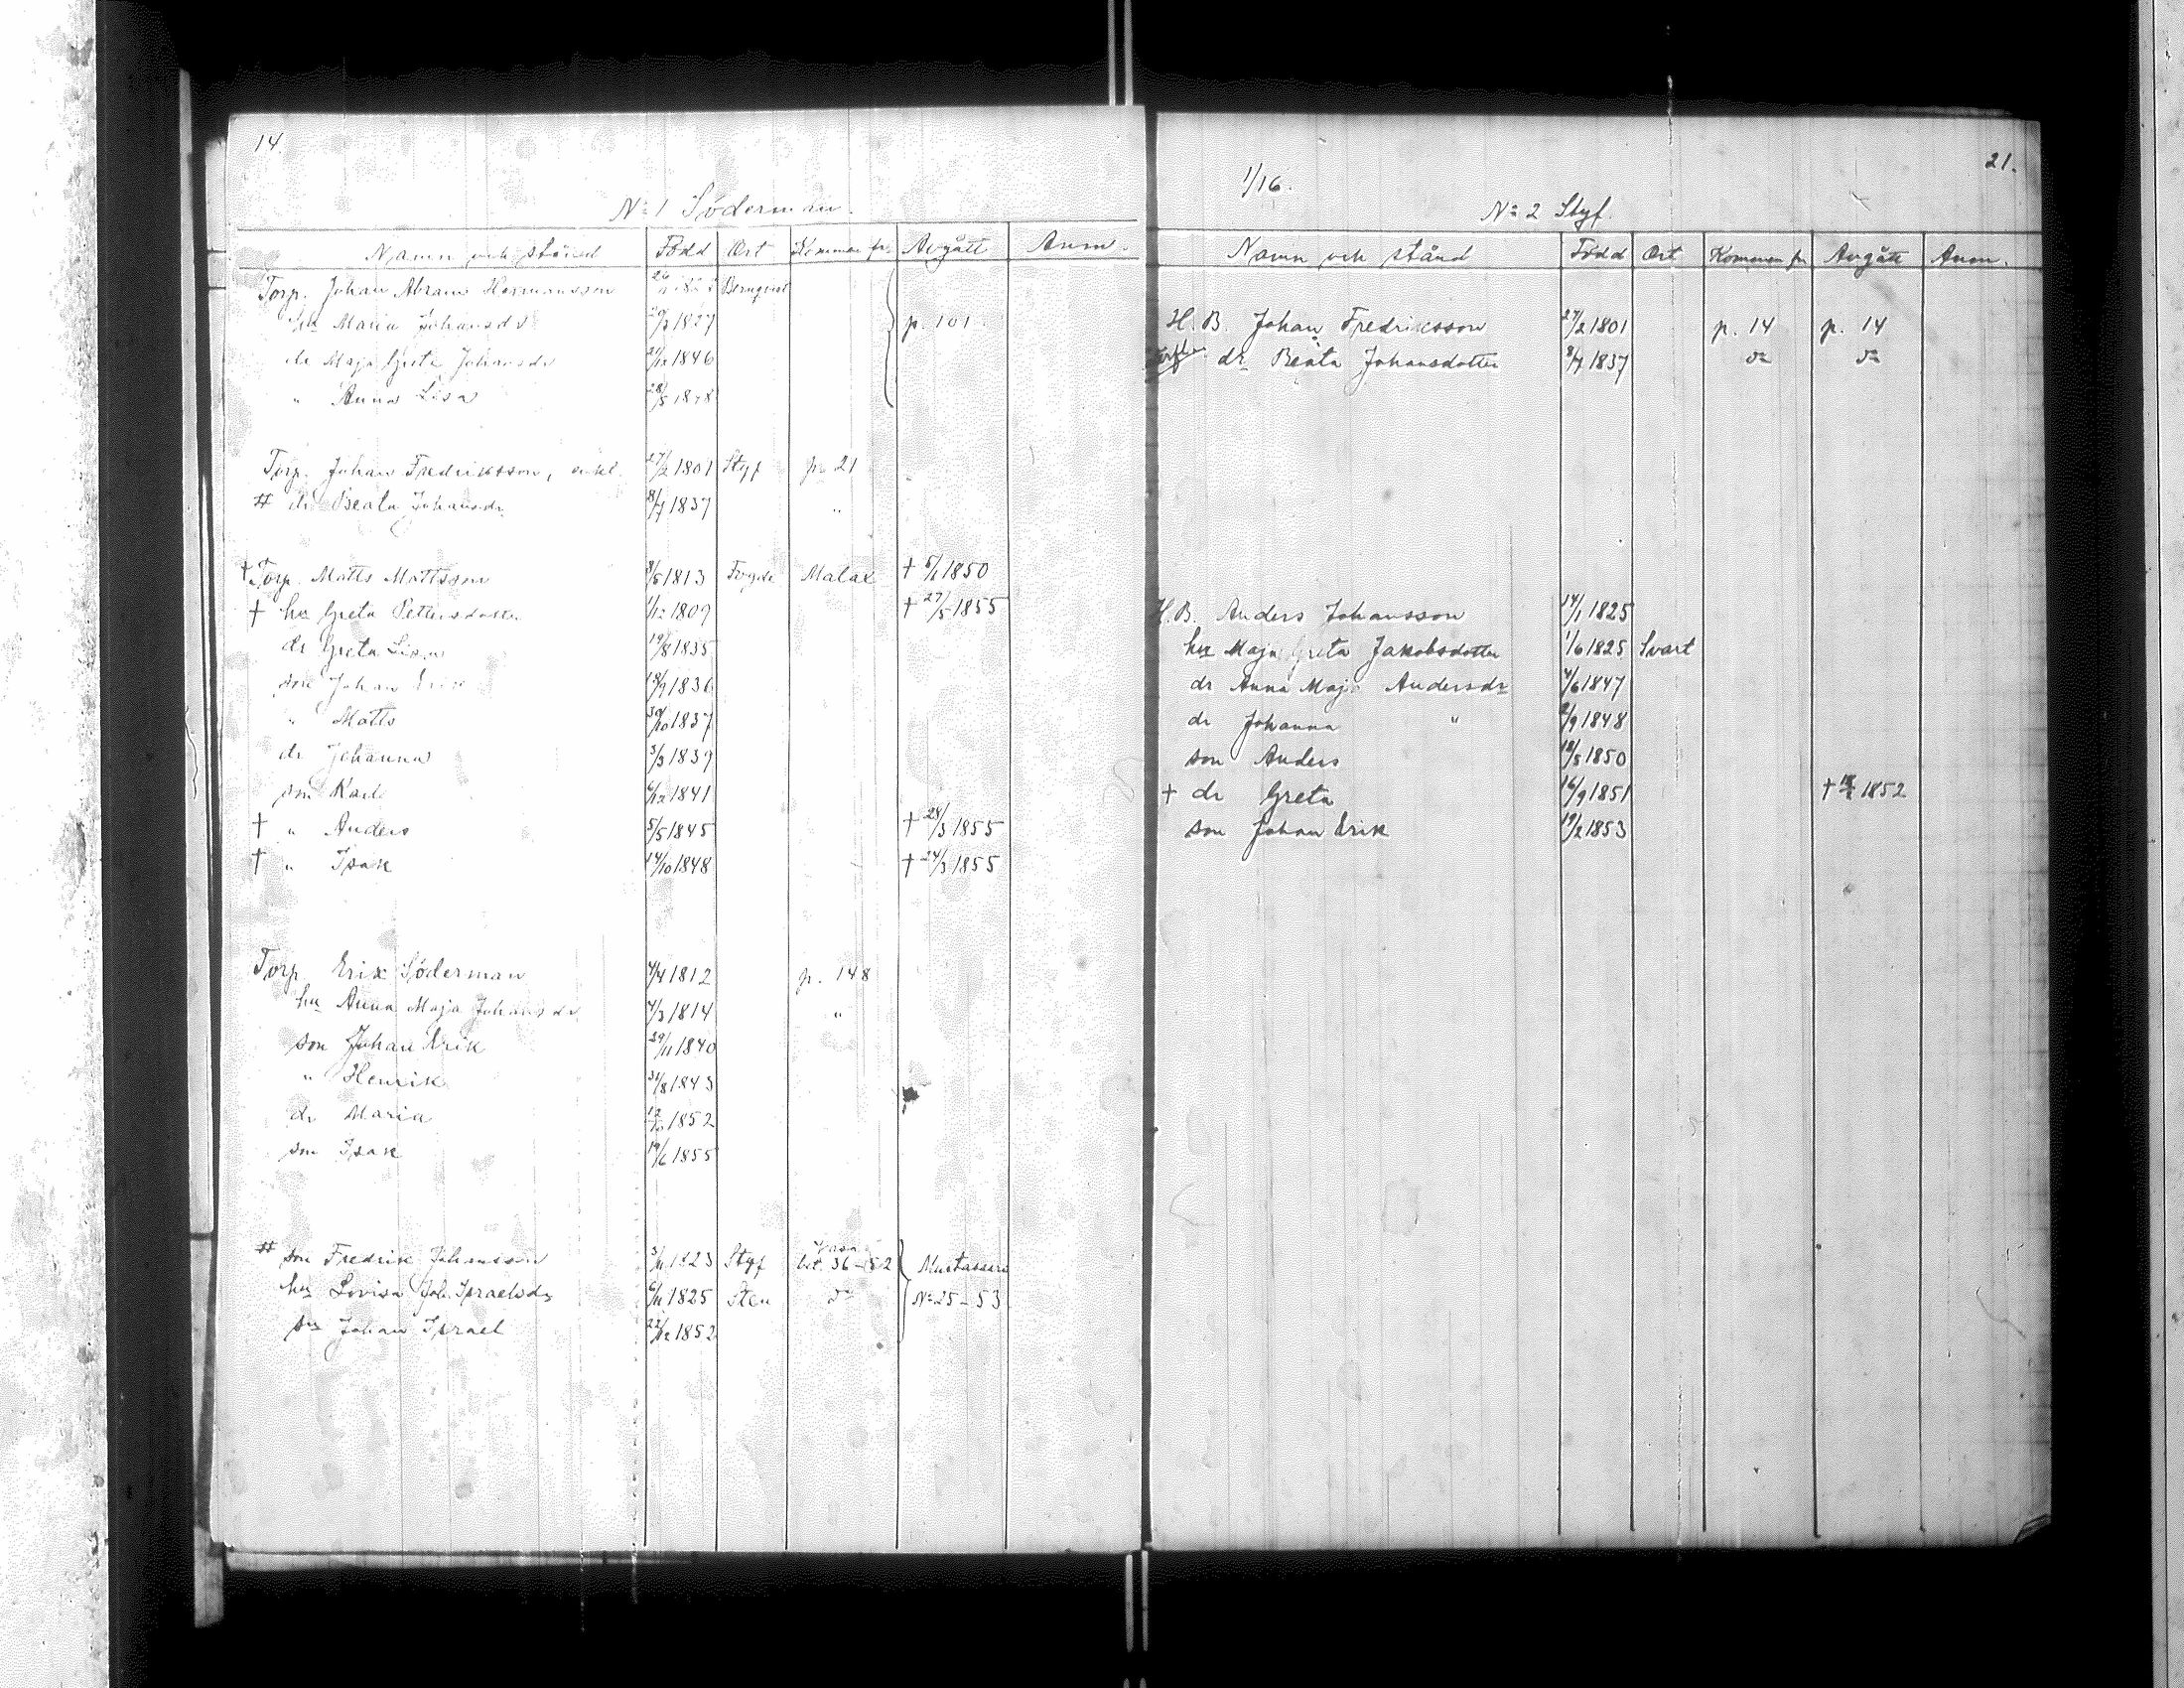 14.
No 1 Söderman.
Namn och stånd Född Ort Kommen fr. Avgått Anm.
Torp. Johan Abram Hermansson Bernqvist
hu Maria Johansdr 1827 p. 101
dr Maja Greta Johansdr 21/12 1846
" Anna Lisa 28/5
Torp. Johan Fredriksson, enkl. 27/2 1801 Styf p. 21
# dr Beata Johansdr 8/7 1837 "
† Torp. Matts Mattsson 8/5 1813 Fogde Malax † 5/1 1850
† hu Greta Pettersdotter 1/12 1809 † 27/5 1855
dr Greta Lisa 19/8 1835
son Johan Erik 18/9 1836
" Matts 30/10 1837
dr Johanna 3/3 1839
son Karl 6/12 1841
† " Anders 5/5 1845 † 24/3 1855
† " Isak 14/10 1848 † 24/3 1855
Torp. Erik Söderman 4/4 1812 p. 148
hu Anna Maja Johansdr 4/3 1814 "
son Johan Erik 29/11 1840
" Henrik 31/8 1843
dr Maria 1852
son Isak 19/6 1855
# son Fredrik Johansson 3/11 1823 Styf Vasa bet. 36-52 Mustasaari
hu Lovisa Joh. Israelsdr 6/11 1825 Sten do No 25-53
son Johan Israel 22/12 1852
21.
1/16.
No 2 Styf.
Namn och stånd Född Ort Kommen fr Avgått Anm.
H. B. Johan Fredriksson 27/2 1801 p. 14 p. 14
dr Beata Johansdotter 8/7 1837 do do
H. B. Anders Johansson 14/1 1825
hu Maja Greta Jakobsdotter 1/6 1825 Svart
dr Anna Maja Andersdr 4/6 1847
dr Johanna " 2/9 1848
son Anders 18/5 1850
† dr Greta 16/9 1851 † 1852
son Johan Erik 19/2 1853